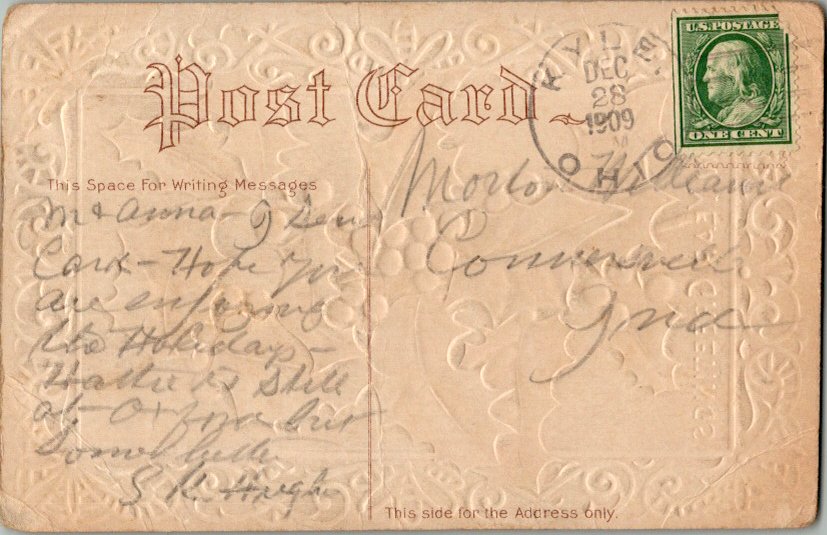 Post Card
U.S. POSTAGE
ONE CENT
KYLE
DEC
28
1909
OHIO
This Space For Writing Messages
M & Anna - I Send
Card - Hope you
are enjoying
the Holidays -
Hattie is Still
at Oxford but
Some better
S K Hugh
Morton Williams
Connersville
Ind
This side for the Address only.